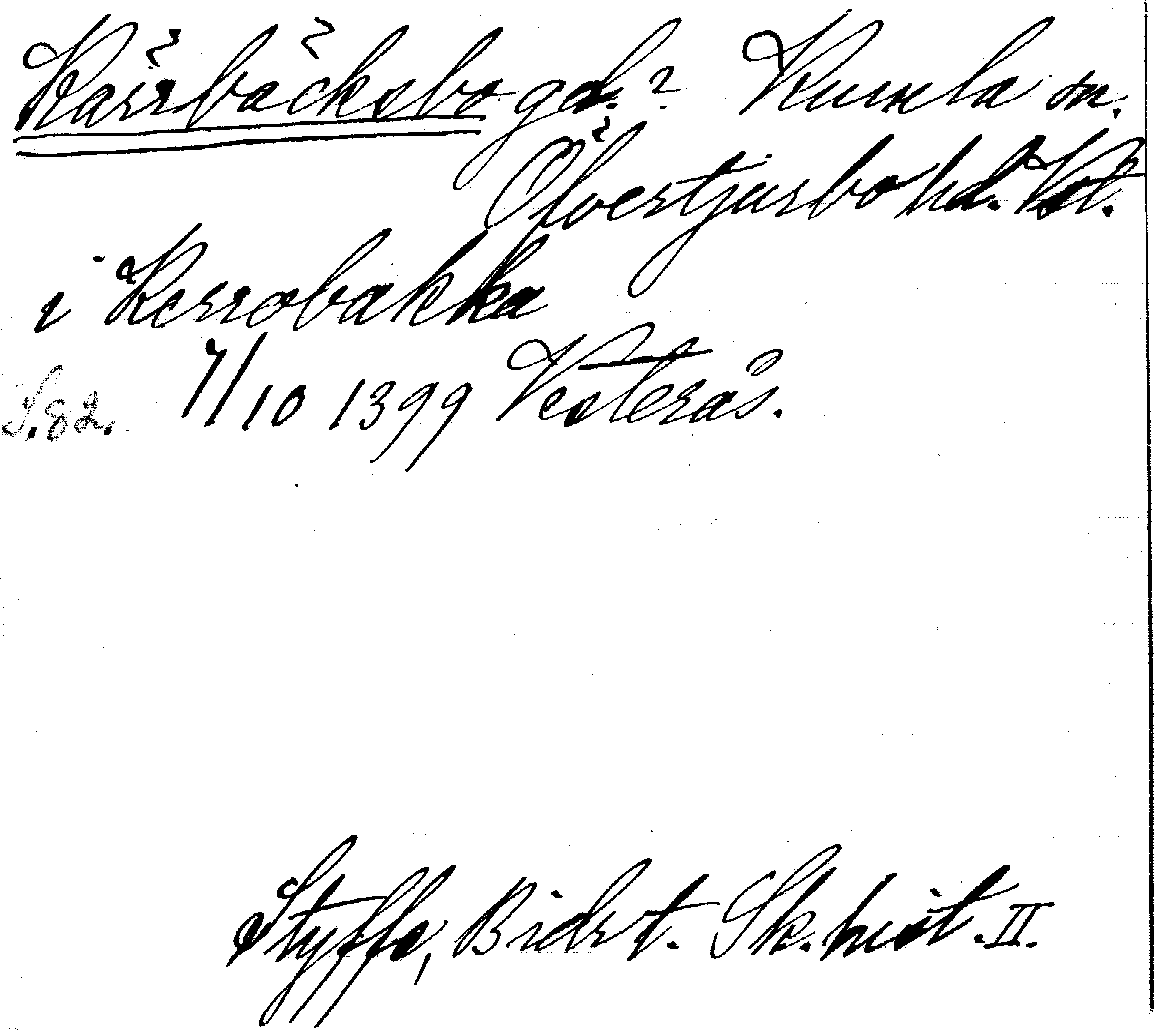 Kärrbäcksbo gd.? Kumla sn.
Övertjurbo hd. Vstm.
i Kerrobakka
S. 82. 7/10 1399 Vesterås.
Styffe, Bidr t. Sk. hist. II.